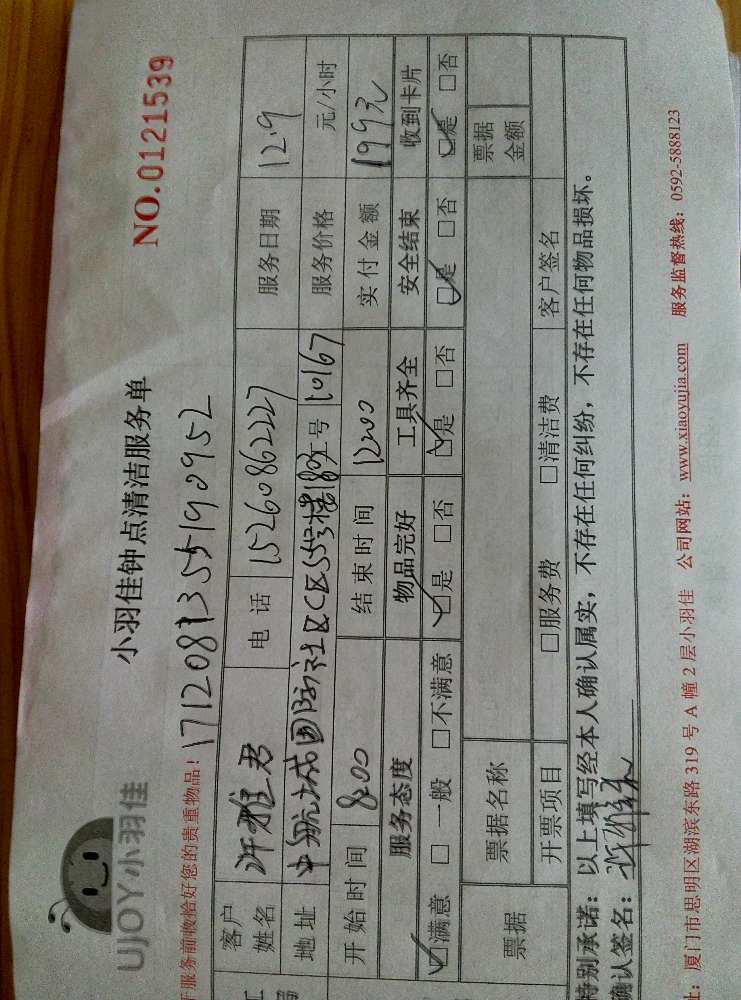 UJOY小羽佳
小羽佳钟点清洁服务单
NO.0121539
服务前收拾好您的贵重物品！
客户姓名 许雅君 电话 15260862227 服务日期 12.9
地址 中航城国际社区C区 号 10167 服务价格 元/小时
开始时间 8:00 结束时间 12:00 实付金额 199元
服务态度 物品完好 工具齐全 安全结束 收到卡片
☑满意 □一般 □不满意 ☑是 □否 ☑是 □否 ☑是 □否 ☑是 □否
票据 票据名称 票据金额
开票项目 □服务费 □清洁费 客户签名
特别承诺：以上填写经本人确认属实，不存在任何纠纷，不存在任何物品损坏。
确认签名：
址：厦门市思明区湖滨东路 319 号 A 幢 2 层小羽佳 公司网站：www.xiaoyujia.com 服务监督热线：0592-5888123